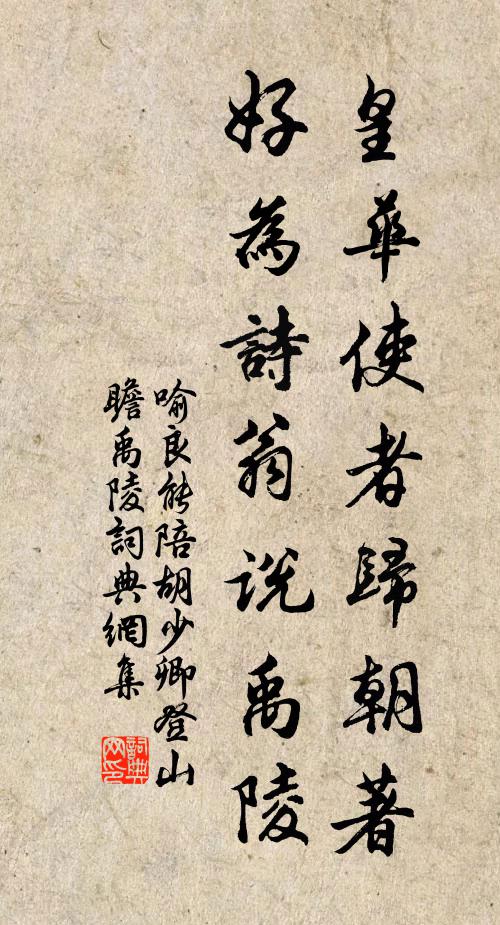 皇華使者歸朝著
好為詩翁説禹陵
喻良能陪胡少卿登山
瞻禹陵詞典網集
詞典
网印